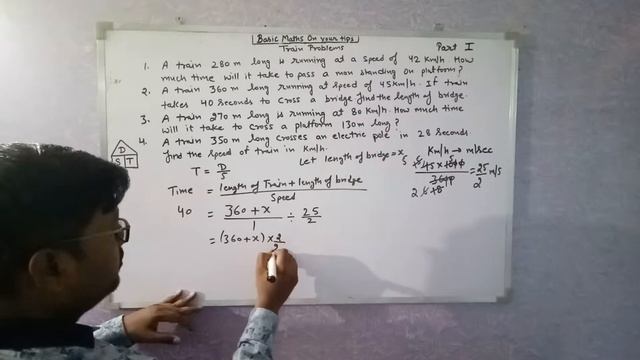 Basic Maths On your tips
Train Problems Part I
1. A train 280 m long is running at a speed of 42 Km/h How
much time will it take to pass a man standing on platform?
2. A train 360 m long running at speed of 45 Km/h. If train
takes 40 seconds to cross a bridge find the length of bridge.
3. A train 270 m long is running at 80 Km/h. How much time
will it take to cross a platform 130 m long?
4. A train 350 m long crosses an electric pole in 28 seconds
find the speed of train in Km/h.
D
S T
T = D/S
Let length of bridge = x
Km/h → m/sec
= 25/2 m/s
Time = length of Train + length of bridge / Speed
40 = 360 + x / 1 ÷ 25/2
= (360 + x) × 2/2